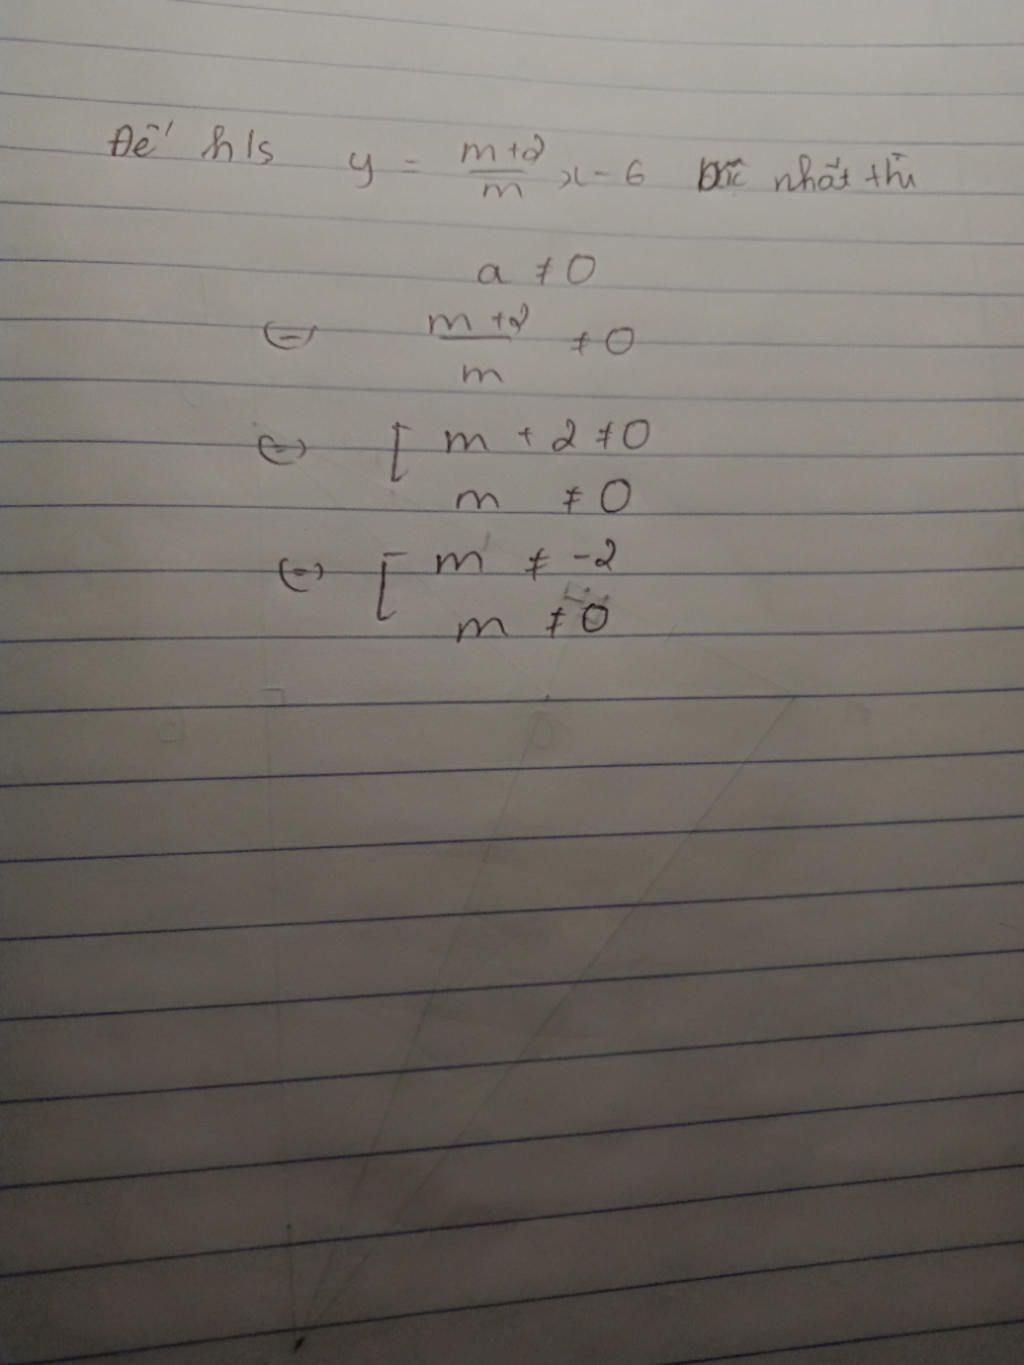 Để h/s y = \frac{m+2}{m} x - 6 bậc nhất thì
a ≠ 0
(=) \frac{m+2}{m} ≠ 0
(=) [ m + 2 ≠ 0
m ≠ 0
(=) [ m ≠ -2
m ≠ 0